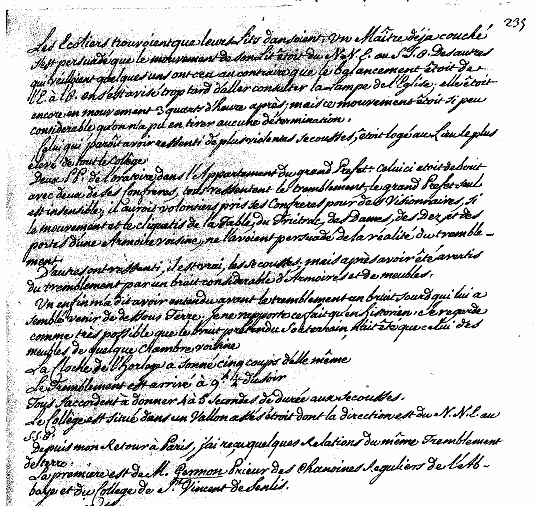 235
Les Ecoliers trouvoient que leurs Lits dansoient. Un Maître déja couché
s'est persuadé que le mouvement de son Lit étoit du N.N.E. au S.S.O. Des autres
qui veilloient quelques uns ont cru au contraire que le balancement étoit de
l'E. à l'O. on s'est avisé trop tard d'aller consulter la Lampe de l'Eglise, elle étoit
encore en mouvement 3 quarts d'heure après; mais ce mouvement étoit si peu
considerable qu'on n'a pu en tirer aucune détermination.
Celui qui paroit avoir ressenti de plus violentes secousses, étoit logé au Lieu le plus
élevé de tout le Collège
Deux P.P. de l'oratoire dans l'Appartement du grand Prefet. Celui ci etoit debout
avec deux de ses Confreres, ceux ci ressentent le tremblement, le grand Prefet seul
est insensible; il auroit volontiers pris ses Confreres pour des Visionnaires, si
le mouvement et le cliquetis de la Table, du Trictrac, des Dames, des Dez, et des
portes d'une Armoire voisine, ne l'avoient persuadé de la réalité du tremble-
ment.
D'autres ont ressenti, il est vrai, les secousses, mais après avoir été avertis
du tremblement par un bruit considerable d'Armoires et de meubles.
Un enfin m'a dit avoir entendu avant le tremblement un bruit sourd qui lui a
semblé venir de dessous Terre. Je ne rapporte ce fait qu'en historien. Je regarde
comme très possible que le bruit prétendu Souterrain, n'ait été que celui des
meubles de quelque chambre voisine
La Cloche de l'horloge a sonné cinq coups d'elle même
Le Tremblement est arrivé à 9h ¼ du soir
Tous s'accordent à donner 4 à 5 secondes de durée aux secousses.
Le Collège est situé dans un Vallon assés étroit dont la direction est du N.N.E. au
S.S.O.
depuis mon Retour à Paris, j'ai reçu quelques Relations du même Tremblement
de terre.
La premiere est de M. Germon Prieur des Chanoines Reguliers de l'Ab-
baye et du College de St. Vincent de Senlis.